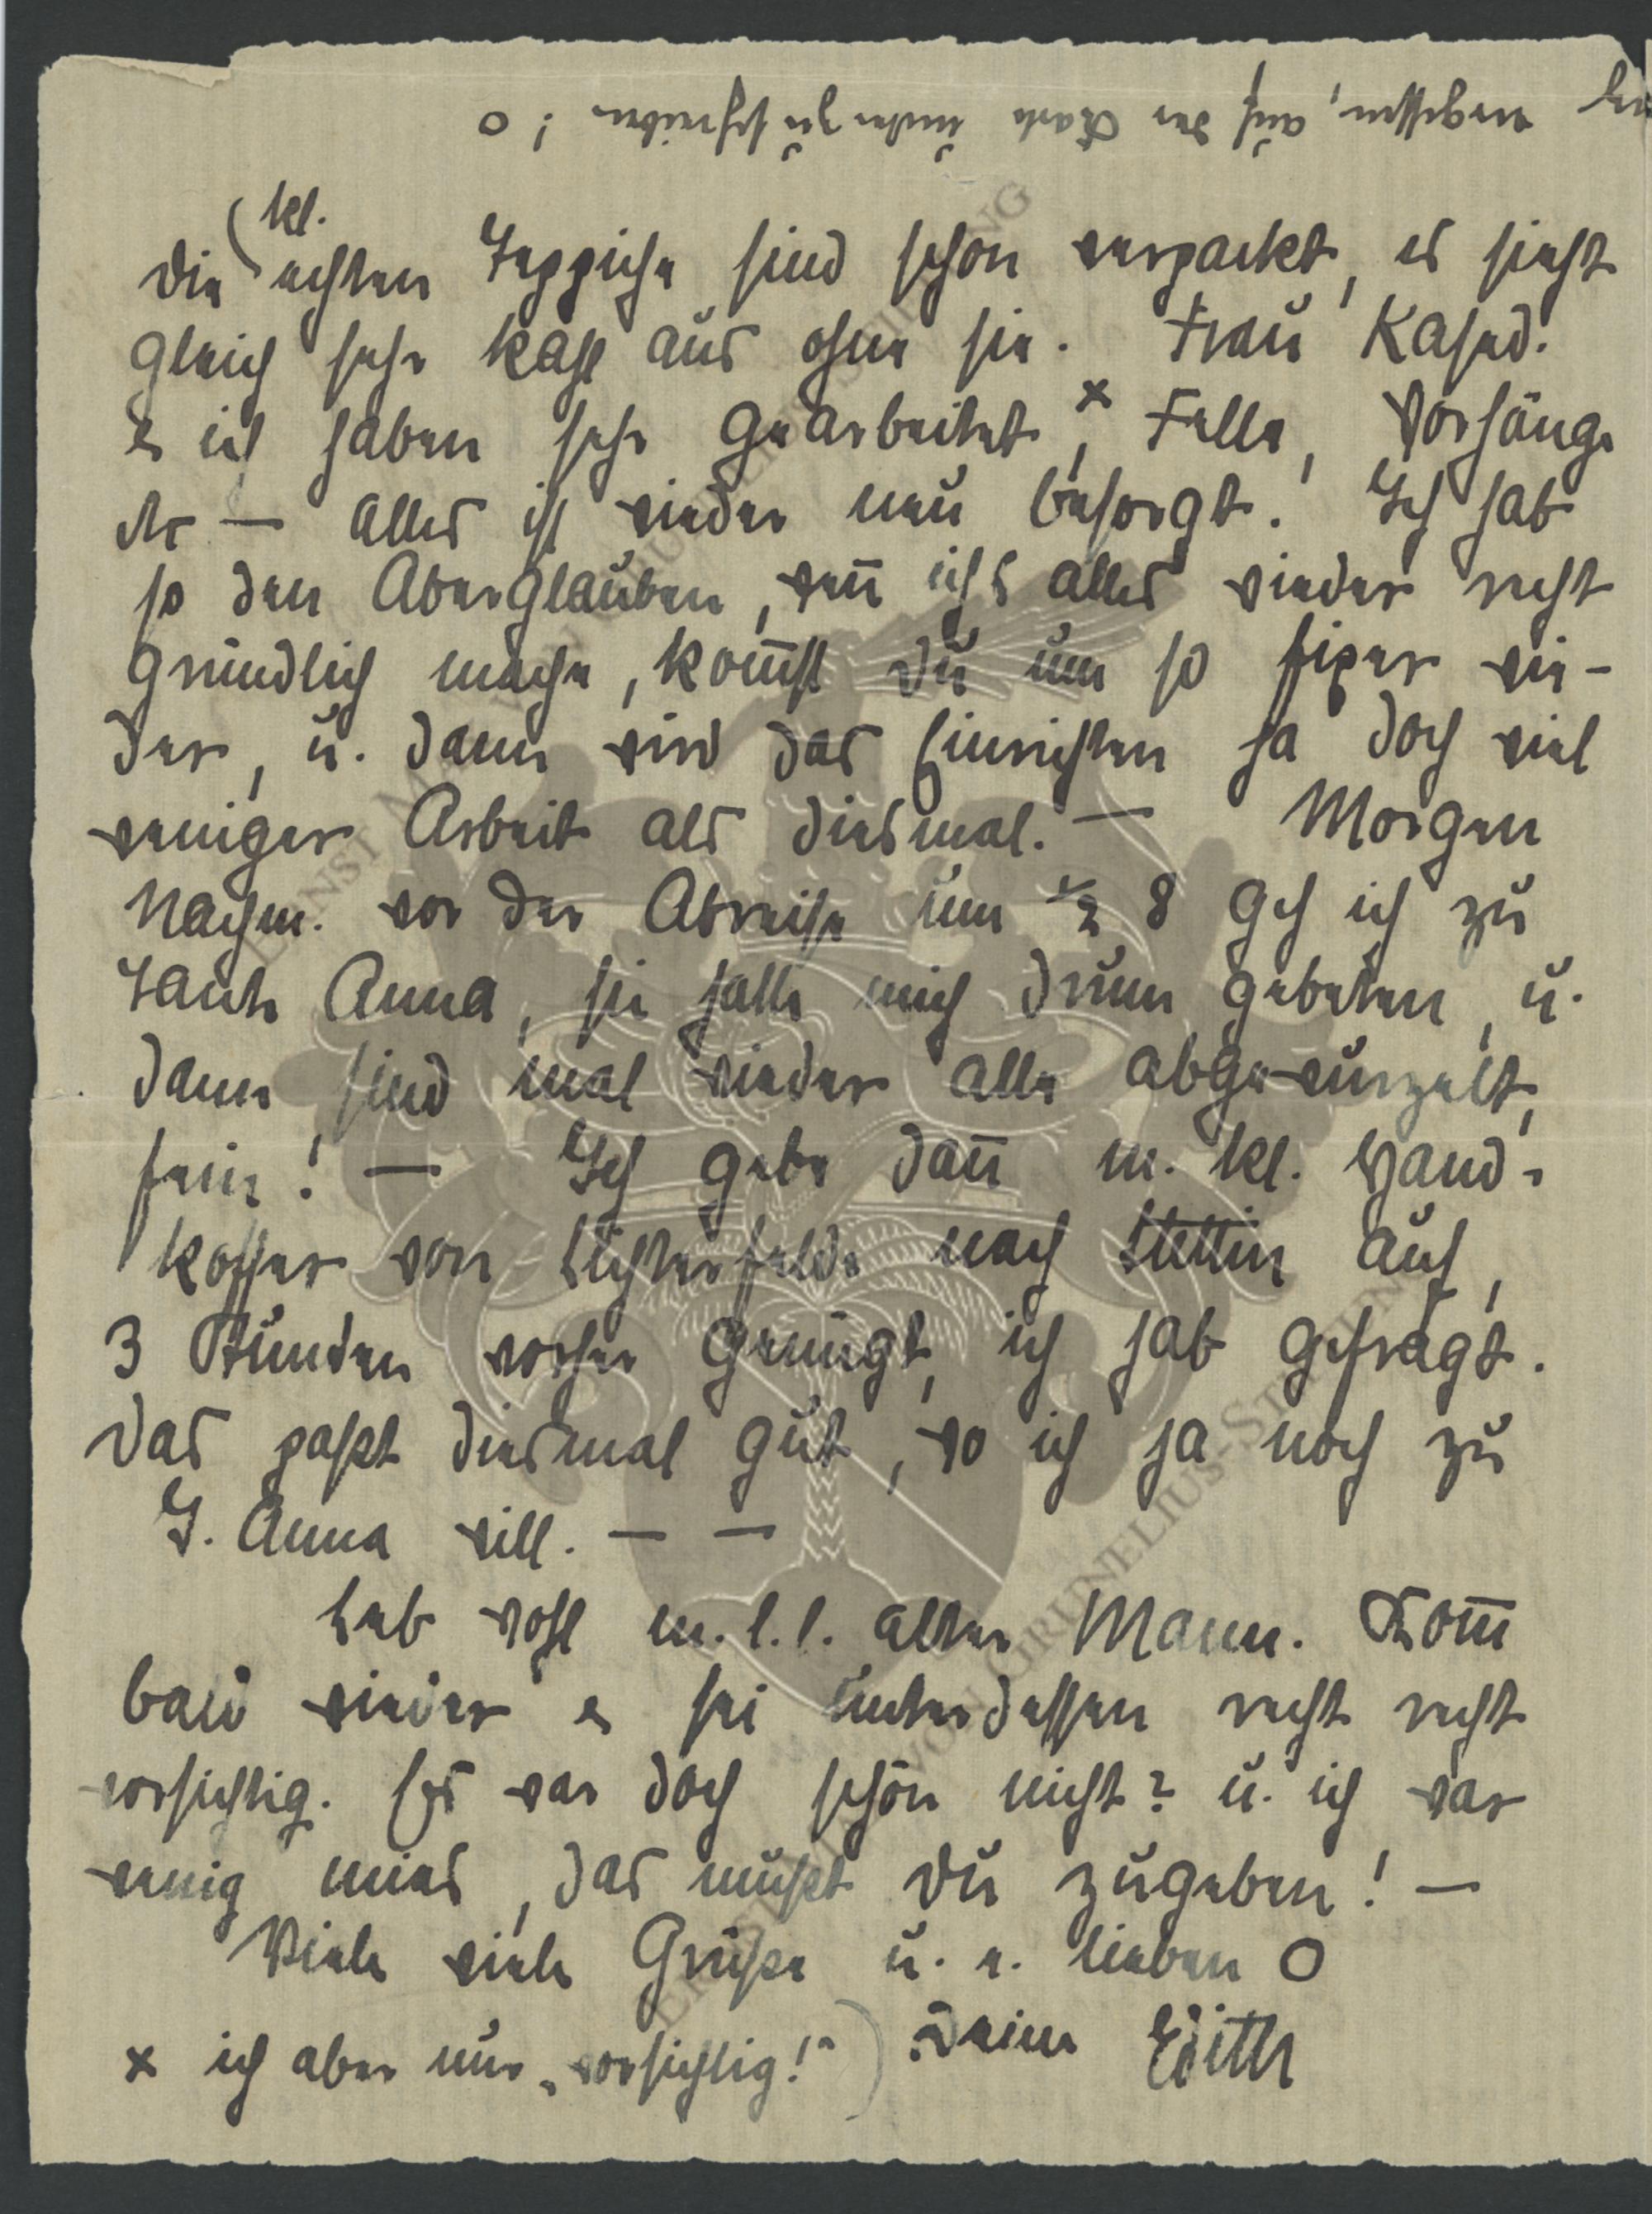 vergessen, auf der Karte unten zu schreiben! O
kl.
Die echten Teppiche sind schon verpackt, es sieht
gleich sehr kahl aus ohne sie. Frau Kahnd.
& ich haben sehr gearbeitet x, Felle, Vorhänge
etc — alles ist wieder neu besorgt. Ich hab
so den Aberglauben, wen̄ ichs alles wieder recht
gründlich mache, kom̄st Du um so fixer wie-
der, u. dann wird das Einrichten ja doch viel
weniger Arbeit als diesmal. — Morgen
Nachm. vor der Abreise um ½ 8 geh ich zu
Tante Anna, sie hatte mich drum gebeten, u.
dann sind mal wieder alle abgewurzelt,
fein! — Ich gebe dan̄ m. kl. Hand-
koffer von Lichterfelde nach Stettin auf,
3 Stunden vorher genügt, ich hab gefragt.
Das paßt diesmal gut, wo ich ja noch zu
T. Anna will. — —
Leb wohl m. l. l. alter Mann. Kom̄
bald wieder & sei unterdessen recht recht
vorsichtig. Es war doch schön nicht? u. ich war
wenig mies, das mußt Du zugeben! —
Viele viele Grüße u. e. lieben O
Deine Edith
x ich aber nur „vorsichtig!“)